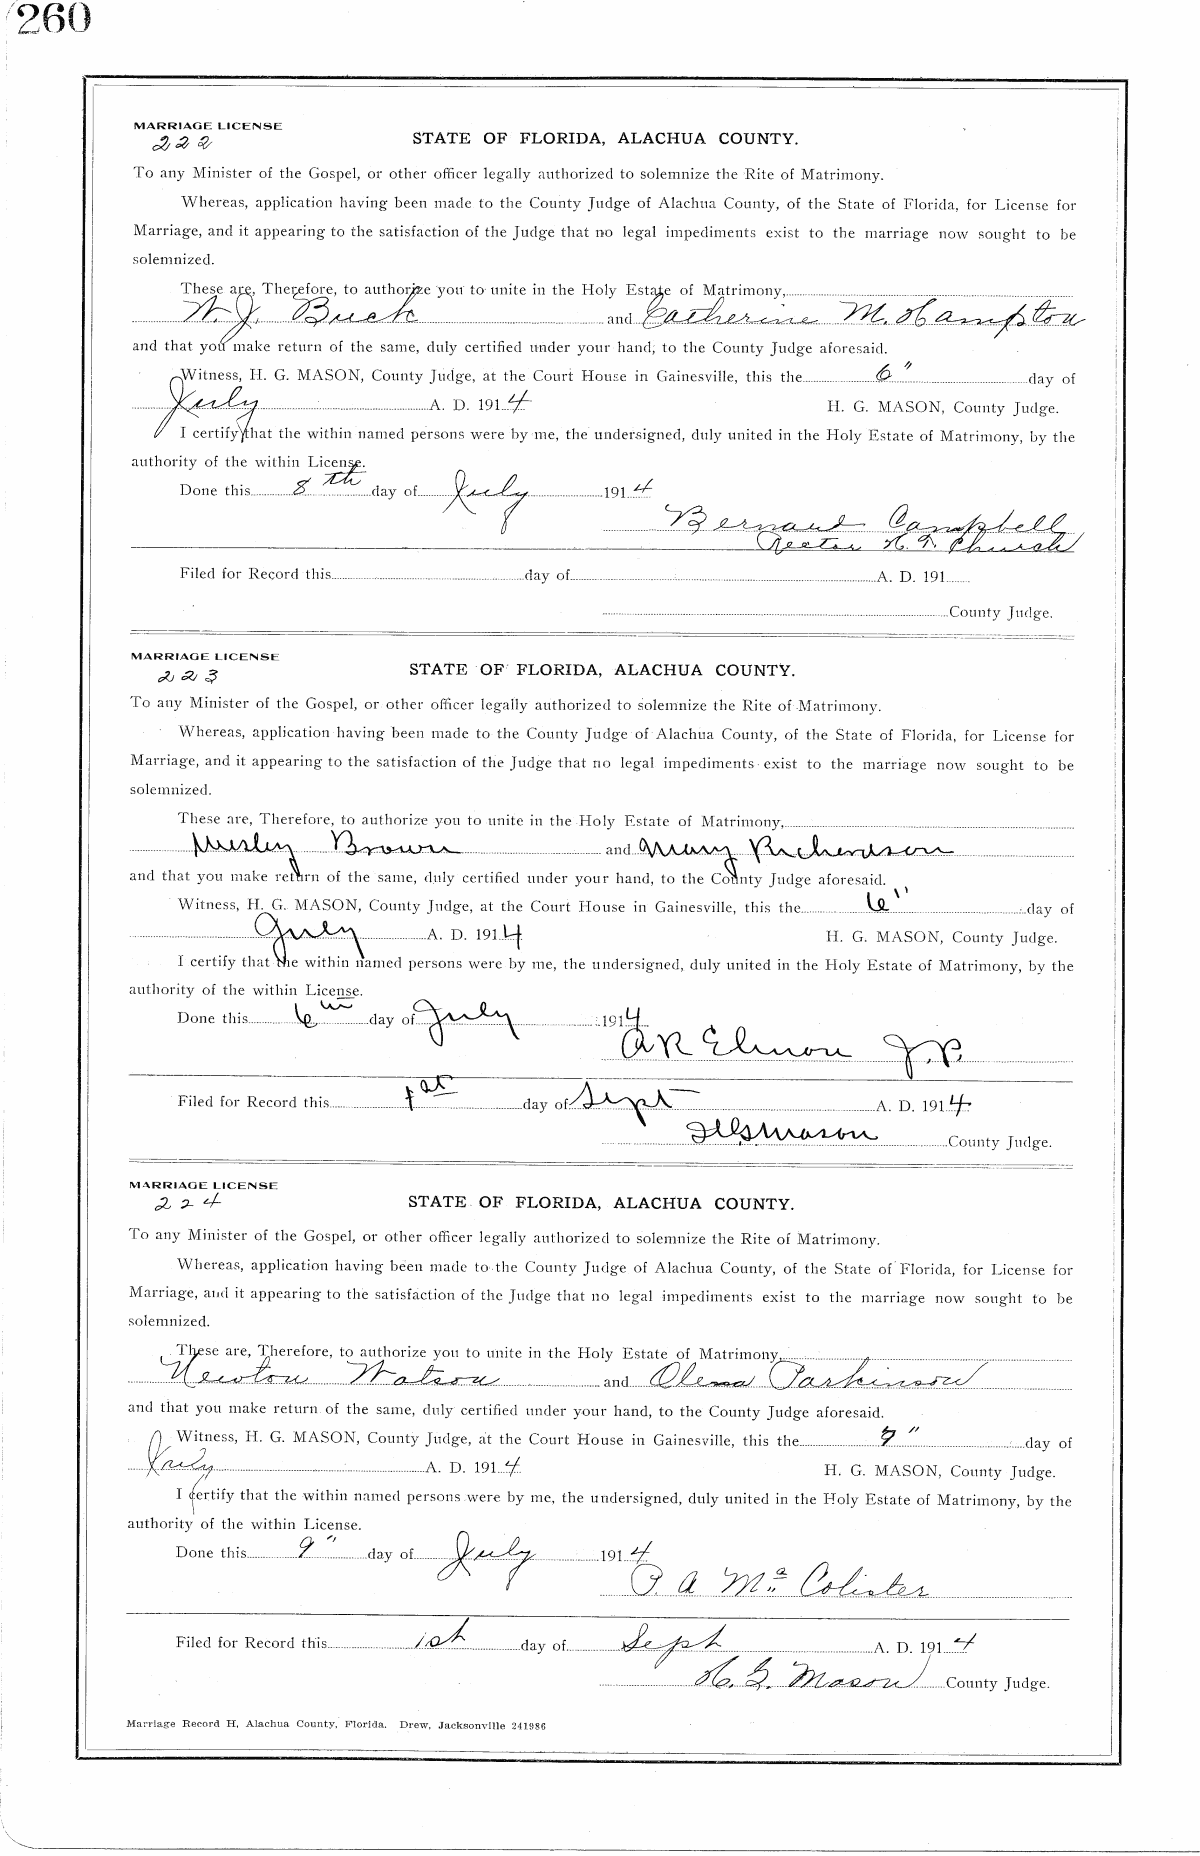 260
MARRIAGE LICENSE
222
STATE OF FLORIDA, ALACHUA COUNTY.
To any Minister of the Gospel, or other officer legally authorized to solemnize the Rite of Matrimony.
Whereas, application having been made to the County Judge of Alachua County, of the State of Florida, for License for
Marriage, and it appearing to the satisfaction of the Judge that no legal impediments exist to the marriage now sought to be
solemnized.
These are, Therefore, to authorize you to unite in the Holy Estate of Matrimony,
W. J. Buck and Catherine M. Hampton
and that you make return of the same, duly certified under your hand, to the County Judge aforesaid.
Witness, H. G. MASON, County Judge, at the Court House in Gainesville, this the 6" day of
July A. D. 1914 H. G. MASON, County Judge.
I certify that the within named persons were by me, the undersigned, duly united in the Holy Estate of Matrimony, by the
authority of the within License.
Done this 8th day of July 1914
Bernard Campbell
Rector H. T. Church
Filed for Record this day of A. D. 191
County Judge.
MARRIAGE LICENSE
223
STATE OF FLORIDA, ALACHUA COUNTY.
To any Minister of the Gospel, or other officer legally authorized to solemnize the Rite of Matrimony.
Whereas, application having been made to the County Judge of Alachua County, of the State of Florida, for License for
Marriage, and it appearing to the satisfaction of the Judge that no legal impediments exist to the marriage now sought to be
solemnized.
These are, Therefore, to authorize you to unite in the Holy Estate of Matrimony,
Wesley Brown and Mary Richerdson
and that you make return of the same, duly certified under your hand, to the County Judge aforesaid.
Witness, H. G. MASON, County Judge, at the Court House in Gainesville, this the 6" day of
July A. D. 1914 H. G. MASON, County Judge.
I certify that the within named persons were by me, the undersigned, duly united in the Holy Estate of Matrimony, by the
authority of the within License.
Done this 6th day of July 1914
A R Elmore J. P.
Filed for Record this 1st day of Sept A. D. 1914
H G Mason County Judge.
MARRIAGE LICENSE
224
STATE OF FLORIDA, ALACHUA COUNTY.
To any Minister of the Gospel, or other officer legally authorized to solemnize the Rite of Matrimony.
Whereas, application having been made to the County Judge of Alachua County, of the State of Florida, for License for
Marriage, and it appearing to the satisfaction of the Judge that no legal impediments exist to the marriage now sought to be
solemnized.
These are, Therefore, to authorize you to unite in the Holy Estate of Matrimony,
Newton Watson and Olena Parkinson
and that you make return of the same, duly certified under your hand, to the County Judge aforesaid.
Witness, H. G. MASON, County Judge, at the Court House in Gainesville, this the 9" day of
July A. D. 1914 H. G. MASON, County Judge.
I certify that the within named persons were by me, the undersigned, duly united in the Holy Estate of Matrimony, by the
authority of the within License.
Done this 9" day of July 1914
P. A McColister
Filed for Record this 1st day of Sept A. D. 1914
H. G. Mason County Judge.
Marriage Record H, Alachua County, Florida. Drew, Jacksonville 241986